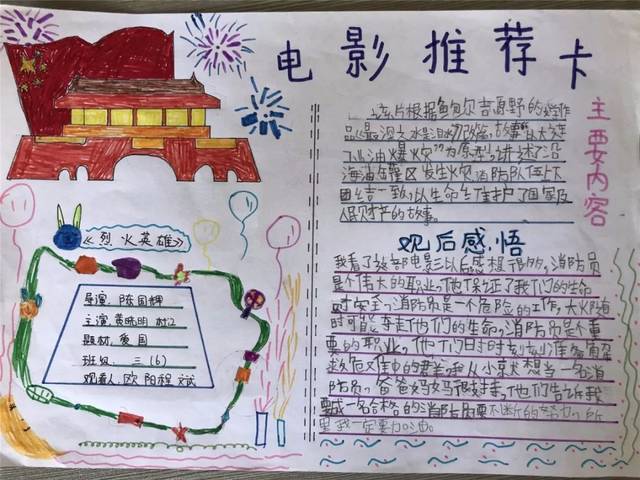 电影推荐卡
主要内容
该片根据鲍尔吉原野的
品《最深的水是泪水》改编，故事以大连
油爆火灾"为原型，讲述了沿
海油区发生火灾，消防队伍上下
团结一致，以生命维护了国家及
人民财产的故事。
《烈火英雄》
导演：陈国辉
主演：黄晓明 杜江
题材：爱国
班级：三（6）
观看人：欧阳程斌
观后感悟
我看了这部电影以后感想很多，消防员
是个伟大的职业，他们保证了我们的生命
安全，消防员是一个危险的工作，大火随
时可能夺走他们的生命，消防员是不重
要的职业，他们时时刻刻准备着
救危
防员，爸爸妈妈很支持，他们告诉我
要成一名合格的消防员要不断的努力，所
以我一定要加油。